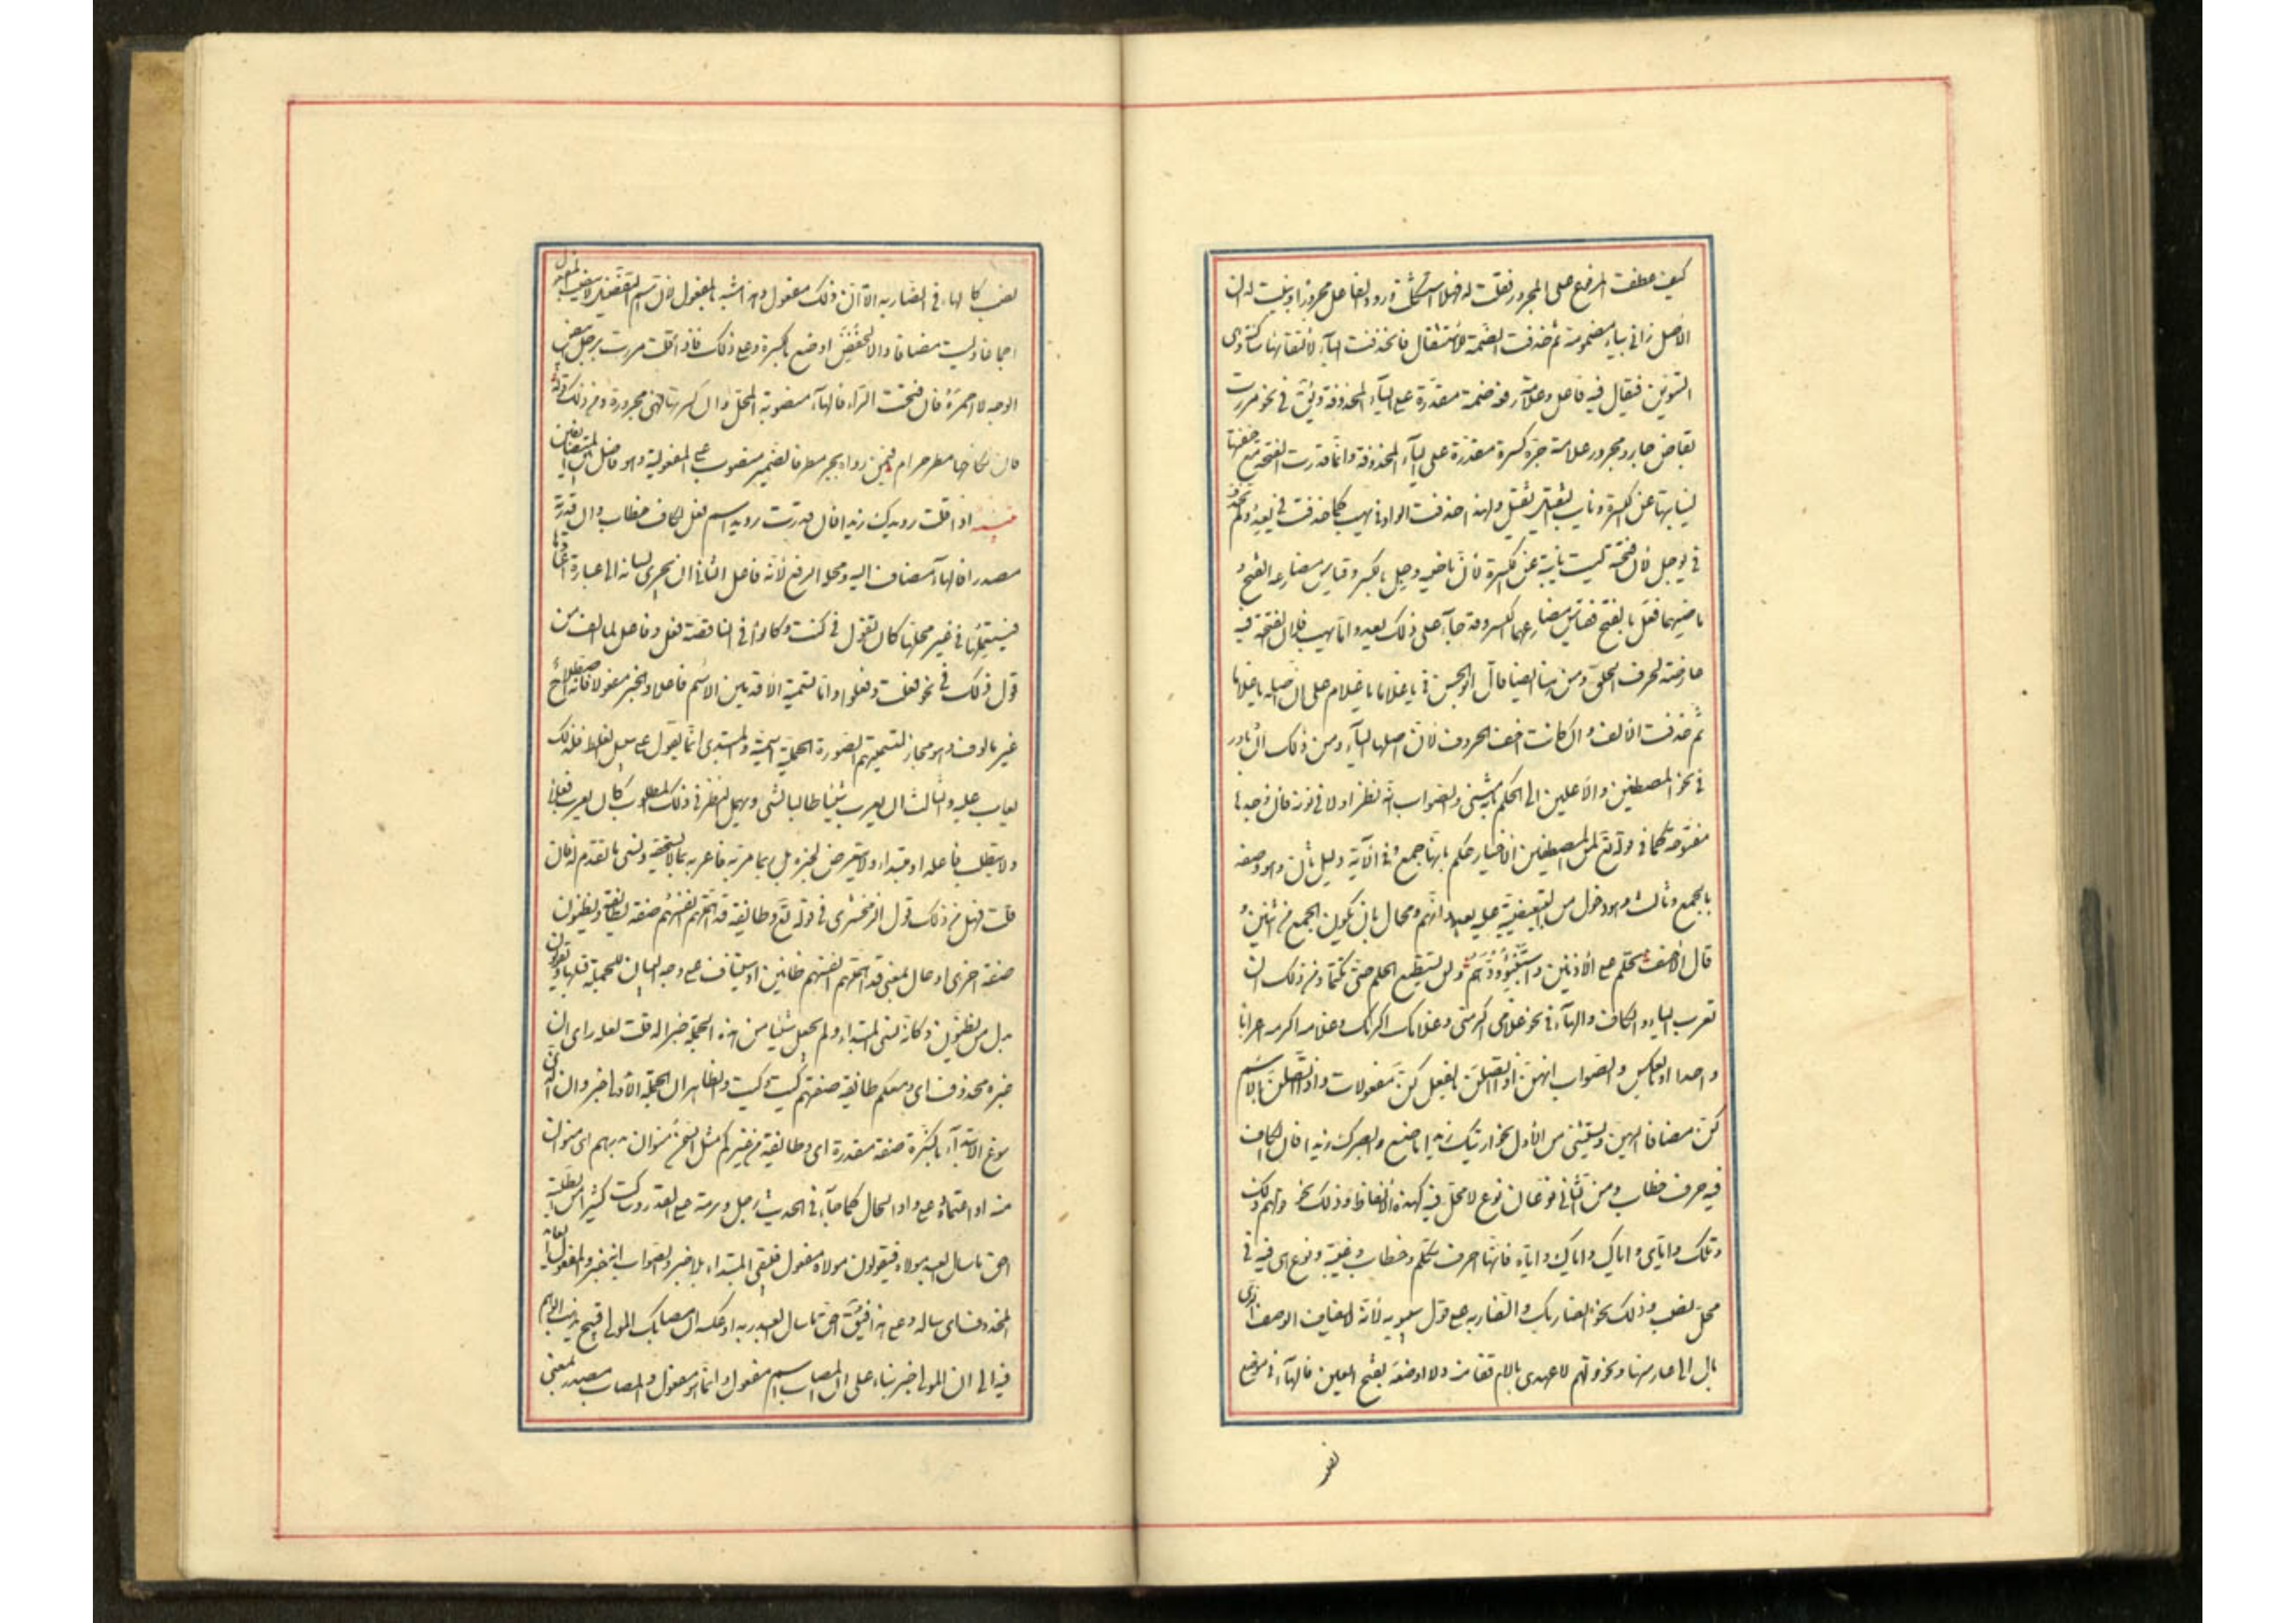 كيف عطفت المرفوع على المجرور فقلت له فهلا استشكلت ورود الفاعل مجرورا وبينت له ان
الأصل زانى بياء مضمومة ثم حذفت الضمة للاستثقال فانحذفت الياء لالتقائها ساكنة هى
التنوين فيقال فيه فاعل وعلامة رفعه ضمة مقدرة على الياء المحذوفة ويق فى نحو مررت
بقاض جار ومجرور علامة جره كسرة مقدرة على الياء المحذوفة وانما قدرت الفتحة مع خفتها
لنيابتها عن الكسرة ونايب الثقيل ثقيل ولهذا حذفت الواو فى يهب كما حذفت فى يعد ولم تحذف
فى يوجل لان فتحته ليست نايبة عن الكسرة لان ماضيه وجل بالكسر وقياس مضارعه الفتح و
ماضيهما فعل بالفتح فقياس مضارعهما الكسر وقد جاء على ذلك يعد واما يهب فان الفتحة فيه
عارضة لحرف الحلق ومن هنا ايضا قال ابو الحسن فى يا غلاما يا غلام على ان اصله يا غلاما
ثم حذفت الالف وان كانت اخف الحروف لان اصلها الياء ومن ذلك ان يبادر
فى نحو المصطفين والاعلين الى الحكم بانه مثنى والصواب ان ينظر اولا فى نونه فان وجدها
مفتوحة كما فى قوله تع لمن المصطفين الاخيار حكم بانها جمع وفى الآية دليل ثان وهو وصفه
بالجمع وثالث وهو دخول من التبعيضية عليه بعد وانهم ومحال بان يكون الجمع من اثنين و
قال الاحنف تحلم على الأدنين واستبق ودهم ولن تستطيع الحلم حتى تحلما ومن ذلك ان
تعرب الياء والكاف والهاء فى نحو غلامى اكرمنى وغلامك اكرمك وغلامه اكرمه اعرابا
واحدا او بالعكس والصواب انهن اذا اتصلن بالفعل كن مفعولات واذا اتصلن بالاسم
كن مضافا اليهن ويستثنى من الأول نحو ارايتك زيدا ما صنع وابصرك زيدا فان الكاف
فيه حرف خطاب ومن الثانى نوعان نوع لا محل فيه لهذه الألفاظ وذلك نحو قولهم ذلك
وتلك واياى واياك واياك واياه فانها احرف تكلم وخطاب وغيبة ونوع هى فيه فى
محل نصب وذلك نحو الضاربك والضاربه على قول سيبويه لانه لا يضاف الوصف الذى
بال الى عار منها ونحو قولهم لا عهد لى بالام قفا منه ولا اوضعه بفتح العين فالهاء فى موضع
نصب
نصب كالهاء فى الضاربه الا ان ذلك مفعول وهذا مشبه بالمفعول لان اسم التفضيل لا ينصب المفعول
اجماعا وليست مضافا والا لخفض اوضع بالكسرة وعلى ذلك فاذا قلت مررت برجل ابيض
الوجه لا احمره فان فتحت الراء فالهاء منصوبة المحل وان كسرتها فهى مجرورة ومن ذلك قوله
فان نكاحها مطر حرام فيمن رواه بجر مطر فالضمير منصوب على المفعولية وهو فاصل بين المتضايفين
تنبيه اذا قلت رويدك زيدا فان قدرت رويدا اسم فعل فالكاف خطاب وان قدرته
مصدرا فالهاء مضاف اليه ومحله الرفع لانه فاعل الثانى ان يجرى لسانه الى عبارة اعتادها
فيستعملها فى غير محلها كان تقول فى كنت وكانوا فى الناقصة فعل وفاعل لما الف من
قول ذلك فى نحو فعلت وفعلوا واما تسمية الاقدمين الاسم فاعلا والخبر مفعولا فانه اصطلاح
غير مالوف وهو مجاز كتسميتهم الصورة الجميلة دمية والمبتدى انما يقول على سبيل الغلط فلذلك
يعاب عليه والثالث ان يعرب شيئا طالبا لشئ ويهمل النظر فى ذلك المطلوب كان يعرب فعلا
ولا يتطلب فاعله او مبتداء ولا يتعرض لخبره بل ربما مر به فاعربه بما لا يستحقه ونسى ما تقدم له فان
قلت فهل من ذلك قول الزمخشرى فى قوله تع وطائفة قد اهمتهم انفسهم صفة لطائفة ويظنون
صفة اخرى او حال بمعنى قد اهمتهم انفسهم ظانين او استيناف على وجه البيان للجملة قبلها ويقولون
بدل من يظنون وكانه نسى المبتداء ولم يجعل شيئا من هذه الجملة خبرا له قلت لعله راى ان
خبره محذوف اى ومعكم طائفة صفتهم كيت وكيت والظاهر ان الجملة الأولى خبر وان الذى
سوغ الابتداء بالنكرة صفة مقدرة اى وطائفة من غيركم مثل السمن منوان بدرهم اى منوان
منه او اعتماده على واو الحال كما جاء فى الحديث دخل وبرمة على النار
احق ما سال العبد مولاه فيقولون مولاه مفعول فيبقى المبتداء بلا خبر والصواب انه خبر والمفعول العائد
المحذوف اى ساله وعلى هذا فيق احق ما سال العبد ربه او عكسه ان مصابك المولى قبيح يذهب الوهم
فيه الى ان المولى خبر بناء على ان المصاب اسم مفعول وانما هو مفعول والمصاب مصدر بمعنى